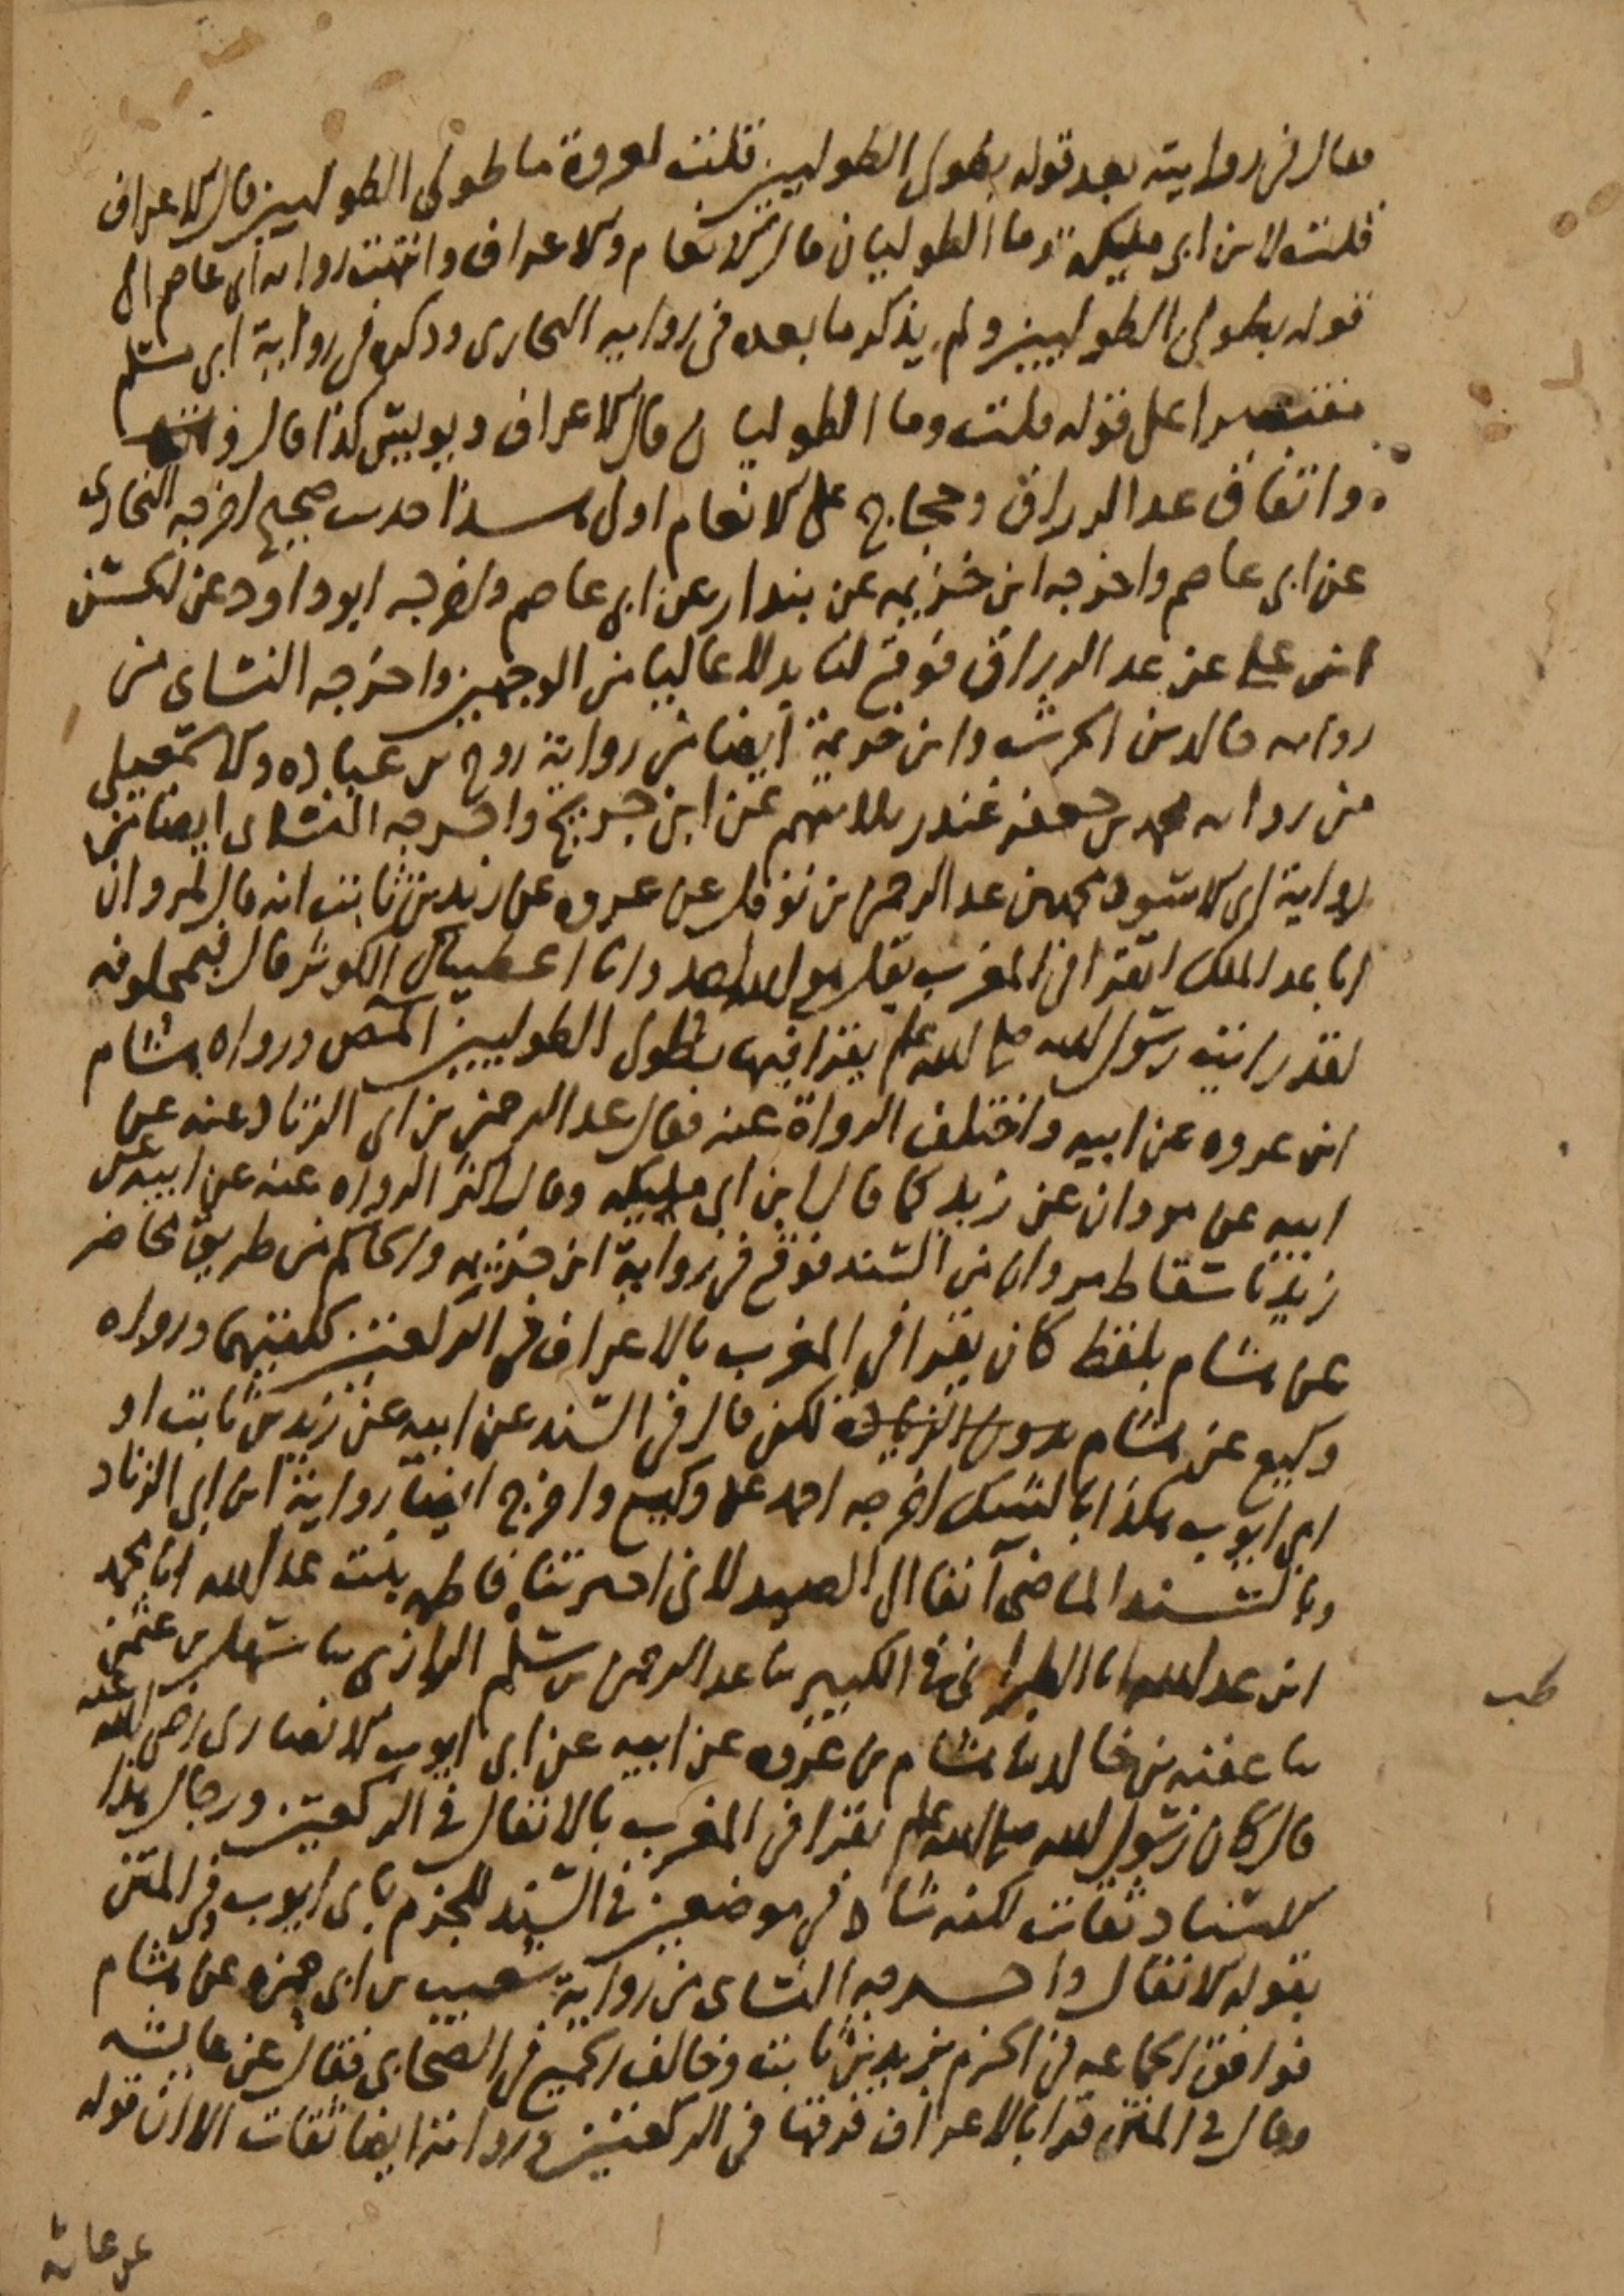 وقال في روايته بعد قوله بطولى الطوليين قلت لعروة ما طولى الطوليين قال الاعراف
قلت لابن ابي مليكة وما الطوليان قال الانعام والاعراف وانتهت رواية ابي عاصم الى
قوله بطولى الطوليين ولم يذكر ما بعده في رواية البخاري وذكره في رواية ابي مسلم
مقتصرا على قوله قلت وما الطوليان قال الاعراف ويونس كذا قال
واتفاق عبد الرزاق وحجاج على الانعام اولى هذا حديث صحيح اخرجه البخاري
عن ابي عاصم واخرجه ابن خزيمة عن بندار عن ابي عاصم واخرجه ابو داود عن الحسن
ابن علي عن عبد الرزاق فوقع لنا بدلا عاليا من الوجهين واخرجه النساي من
رواية خالد بن الحرث وابن خزيمة ايضا من رواية روح بن عباده والاسمعيلي
من رواية محمد بن جعفر غندر ثلاثتهم عن ابن جريج واخرجه النساى ايضا من
رواية ابي الاسود محمد بن عبد الرحمن بن نوفل عن عروه عن زيد بن ثابت انه قال لمروان
ابا عبد الملك اتقرا في المغرب بقل هو الله احد وانا اعطيناك الكوثر قال فمحلوفه
لقد رايت رسول الله صلى الله عليه وسلم يقرا فيها بطولى الطوليين المص ورواه هشام
ابن عروه عن ابيه واختلف الرواة عنه فقال عبد الرحمن بن ابي الزناد عنه عن
ابيه عن مروان عن زيد كما قال ابن ابي مليكه وقال اكثر الرواه عنه عن ابيه عن
زيد باسقاط مروان من السند فوقع في رواية ابن خزيمه والحاكم من طريق محاضر
عن هشام بلفظ كان يقرا في المغرب بالاعراف في الركعتين كلتيهما ورواه
وكيع عن هشام بدون الزيادة لكن قال في السند عن ابيه عن زيد بن ثابت او
ابي ايوب هكذا بالشك اخرجه احمد عن وكيع واخرج ايضا رواية ابن ابي الزناد
وبالسند الماضي آنفا الى الصيدلاني اخبرتنا فاطمه بنت عبد الله انا محمد
ابن عبد الله انا الطبراني في الكبير نا عبد الرحمن بن سلم الرازي نا سهل بن عثمن
نا عقبه بن خالد نا هشام بن عروه عن ابيه عن ابي ايوب الانصاري رضي الله عنه
قال كان رسول الله صلى الله عليه وسلم يقرا في المغرب بالانفال في الركعتين ورجال هذا
الاسناد ثقات لكنه شاذ في موضعين في السند للجزم بابي ايوب وفي المتن
بقوله الانفال واخرجه النساى من رواية شعيب بن ابي حمزه عن هشام
فوافق الجماعه في الجزم بزيد بن ثابت وخالف الجميع في الصحابي فقال عن عايشه
وقال في المتن قرا بالاعراف فرقها في الركعتين ورواته ايضا ثقات الا ان قوله
طب
عن عائشة